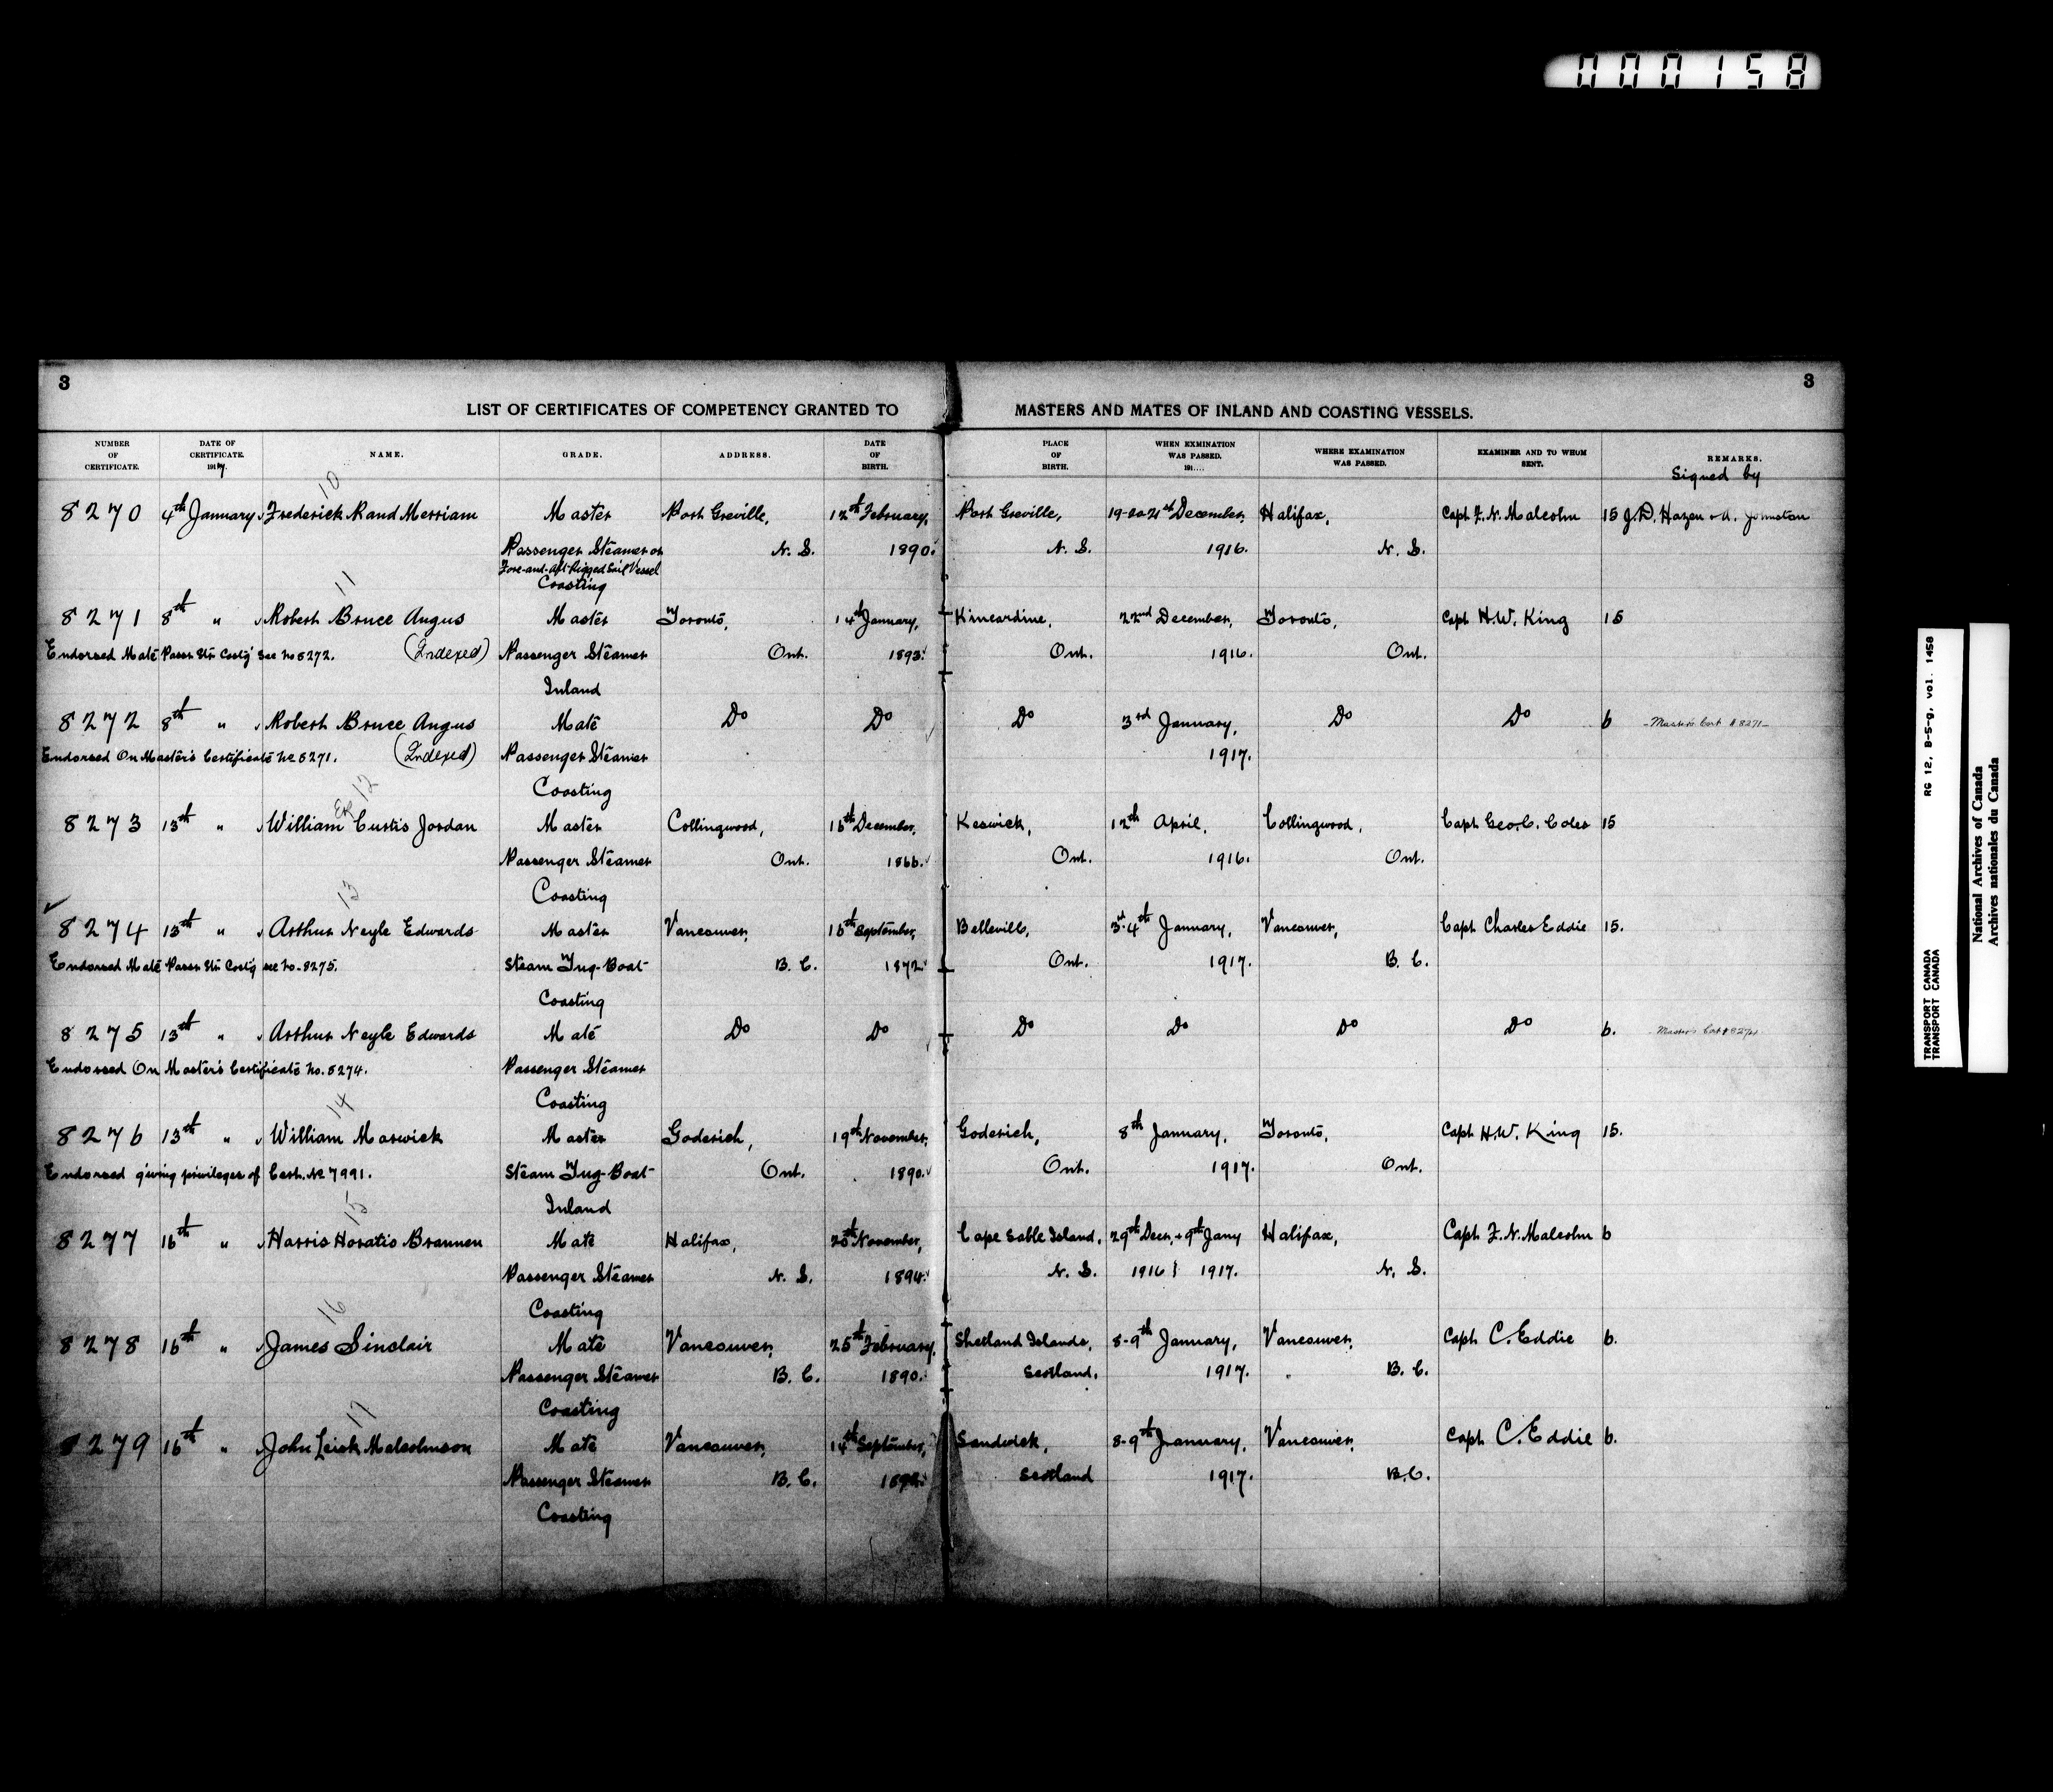 000158
3
3
LIST OF CERTIFICATES OF COMPETENCY GRANTED TO MASTERS AND MATES OF INLAND AND COASTING VESSELS.
NUMBER OF CERTIFICATE. DATE OF CERTIFICATE. 1917. NAME. GRADE. ADDRESS. DATE OF BIRTH. PLACE OF BIRTH. WHEN EXAMINATION WAS PASSED. 191.... WHERE EXAMINATION WAS PASSED. EXAMINER AND TO WHOM SENT. REMARKS.
Signed by
10
8270 4th January Frederick Rand Merriam Master Port Greville, 12th February, Port Greville, 19-20-21st December, Halifax, Capt F. N. Malcolm 15 J. D. Hazen & A. Johnston
Passenger Steamer or N. S. 1890. N. S. 1916. N. S.
Fore-and-Aft Rigged Sail Vessel
Coasting
11
8271 8th " Robert Bruce Angus Master Toronto, 14th January, Kincardine, 22nd December, Toronto, Capt H.W. King 15
Endorsed Mate Passr Str Costg see No 8272. (Indexed) Passenger Steamer Ont. 1893. Ont. 1916. Ont.
Inland
8272 8th " Robert Bruce Angus Mate Do Do Do 3rd January, Do Do 6 - Master's Cert # 8271 -
Endorsed On Master's Certificate No 8271. (Indexed) Passenger Steamer 1917.
Coasting
12
8273 13th " William Curtis Jordan Master Collingwood, December, Keswick, 12th April, Collingwood, Capt Geo. C. Coles 15
Passenger Steamer Ont. 1866. Ont. 1916. Ont.
Coasting
13
8274 13th " Arthur Neyle Edwards Master Vancouver, September, Belleville, 3rd-4th January, Vancouver, Capt Charles Eddie 15.
Endorsed Mate Passr Str Costg see No. 8275. Steam Tug-Boat B. C. 1872. Ont. 1917. B. C.
Coasting
8275 13th " Arthur Neyle Edwards Mate Do Do Do Do Do Do 6. Master's Cert # 8274
Endorsed On Master's Certificate No. 8274. Passenger Steamer
Coasting
14
8276 13th " William Marwick Master Goderich, 19th November, Goderich, 8th January, Toronto, Capt H.W. King 15.
Endorsed giving privileges of Cert. No 7991. Steam Tug-Boat Ont. 1890. Ont. 1917. Ont.
Inland
15
8277 16th " Harris Horatio Brannen Mate Halifax, November, Cape Sable Island, 29th Decr. & 9th Jany Halifax, Capt F. N. Malcolm 6
Passenger Steamer N. S. 1894. N. S. 1916 & 1917. N. S.
Coasting
16
8278 16th " James Sinclair Mate Vancouver, 25th February, Shetland Islands, 8-9th January, Vancouver, Capt C. Eddie 6.
Passenger Steamer B. C. 1890. Scotland. 1917. B. C.
Coasting
17
8279 16th " John Leisk Malcolmson Mate Vancouver, 14th September, Sandwick, 8-9th January, Vancouver, Capt C. Eddie 6.
Passenger Steamer B. C. Scotland 1917. B.C.
Coasting
RG 12, B-5-g, vol. 1458
TRANSPORT CANADA
TRANSPORT CANADA
National Archives of Canada
Archives nationales du Canada